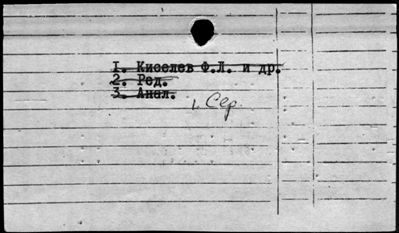 1. Киселев Ф.Л. и др.
2. Ред.
3. Анал.
1. Сер.